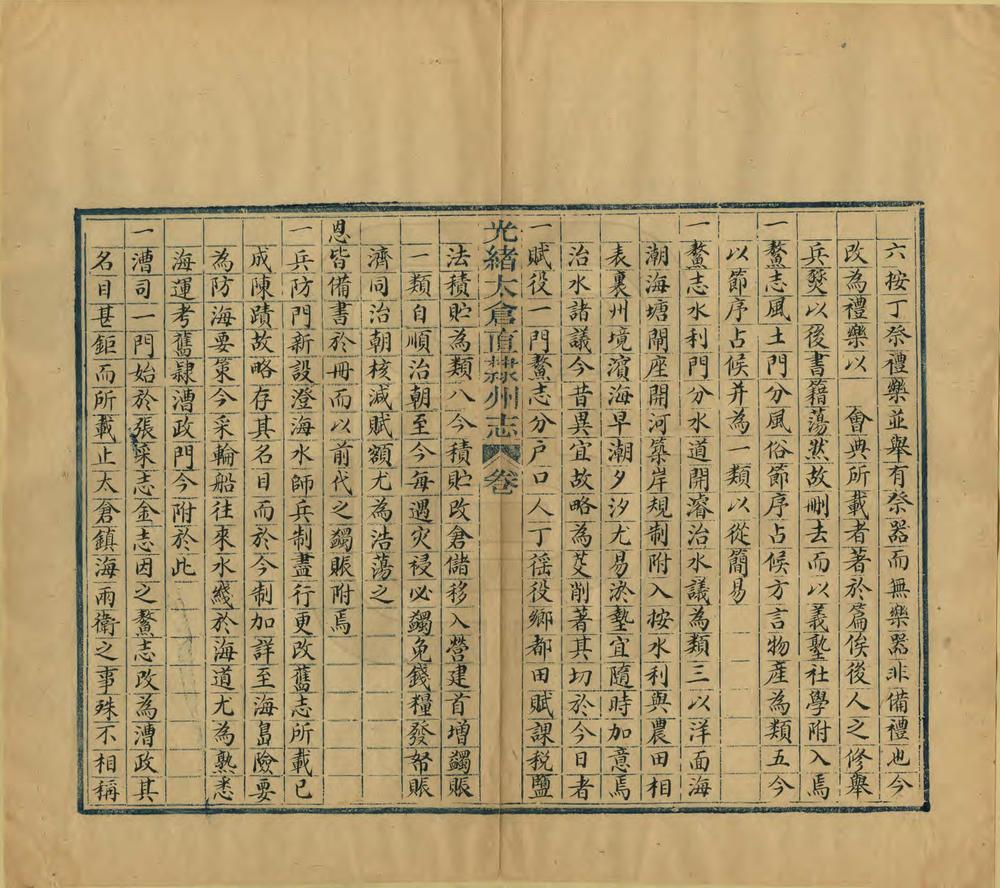 六按丁祭禮樂並舉有祭器而無樂器非備禮也今
改為禮樂以　會典所載者著於篇俟後人之修舉
兵燹以後書籍蕩然故刪去而以義塾社學附入焉
一鰲志風土門分風俗節序占候方言物產為類五今
以節序占候并為一類以從簡易
一鰲志水利門分水道開濬治水議為類三以洋面海
潮海塘閘座開河築岸規制附入按水利與農田相
表裏州境濱海早潮夕汐尤易淤墊宜隨時加意焉
治水諸議今昔異宜故略為芟削著其切於今日者
一賦役一門鰲志分户口人丁徭役鄉都田賦課稅鹽
光緒太倉直隸州志 卷
法積貯為類八今積貯改倉儲移入營建首增蠲賬
一類自順治朝至今每遇灾祲必蠲免錢糧發帑賬
濟同治朝核減賦額尤為浩蕩之
恩皆備書於冊而以前代之蠲賬附焉
一兵防門新設澄海水師兵制盡行更改舊志所載已
成陳蹟故略存其名目而於今制加詳至海島險要
為防海要策今采輪船往來水綫於海道尤為熟悉
海運考舊隸漕政門今附於此
一漕司一門始於張采志金志因之鰲志改為漕政其
名目甚鉅而所載止太倉鎮海兩衛之事殊不相稱